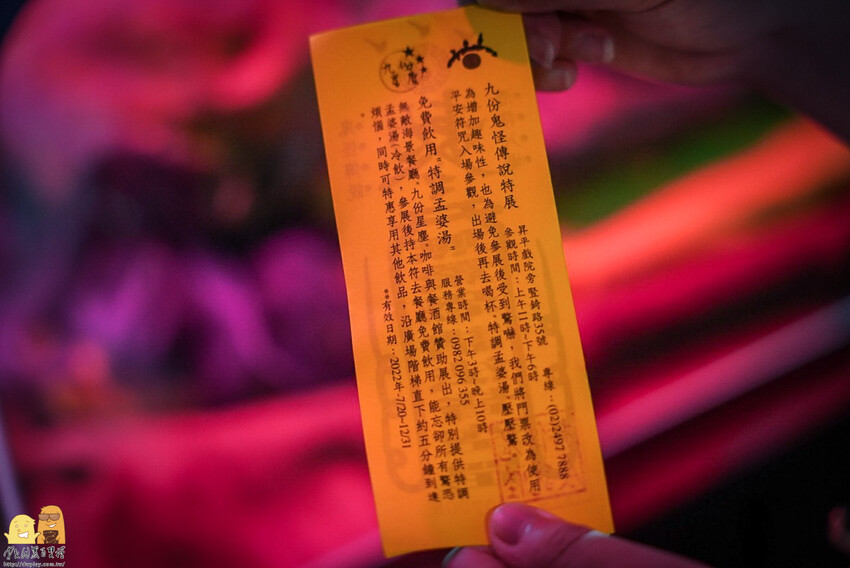 九份鬼怪傳說特展
昇平戲院旁豎崎路35號　專線：(02)2497 7888
參觀時間：上午11時~下午6時
為增加趣味性，也為避免參展後受到驚嚇，我們將門票改為使用
平安符咒入場參觀，出場後再去喝杯"特調孟婆湯"壓壓驚。
免費飲用"特調孟婆湯"
營業時間：下午3時~晚上10時
服務專線：0982 096 355
無敵海景餐廳"九份星塵"咖啡與餐酒館贊助展出，特別提供特調
孟婆湯(冷飲)，參展後持本符去餐廳免費飲用，能忘卻所有驚恐
煩惱，同時可特惠享用其他飲品，沿廣場階梯直下約五分鐘到達。
**有效日期：2022年-7/20~12/31
http://theplay.com.tw/